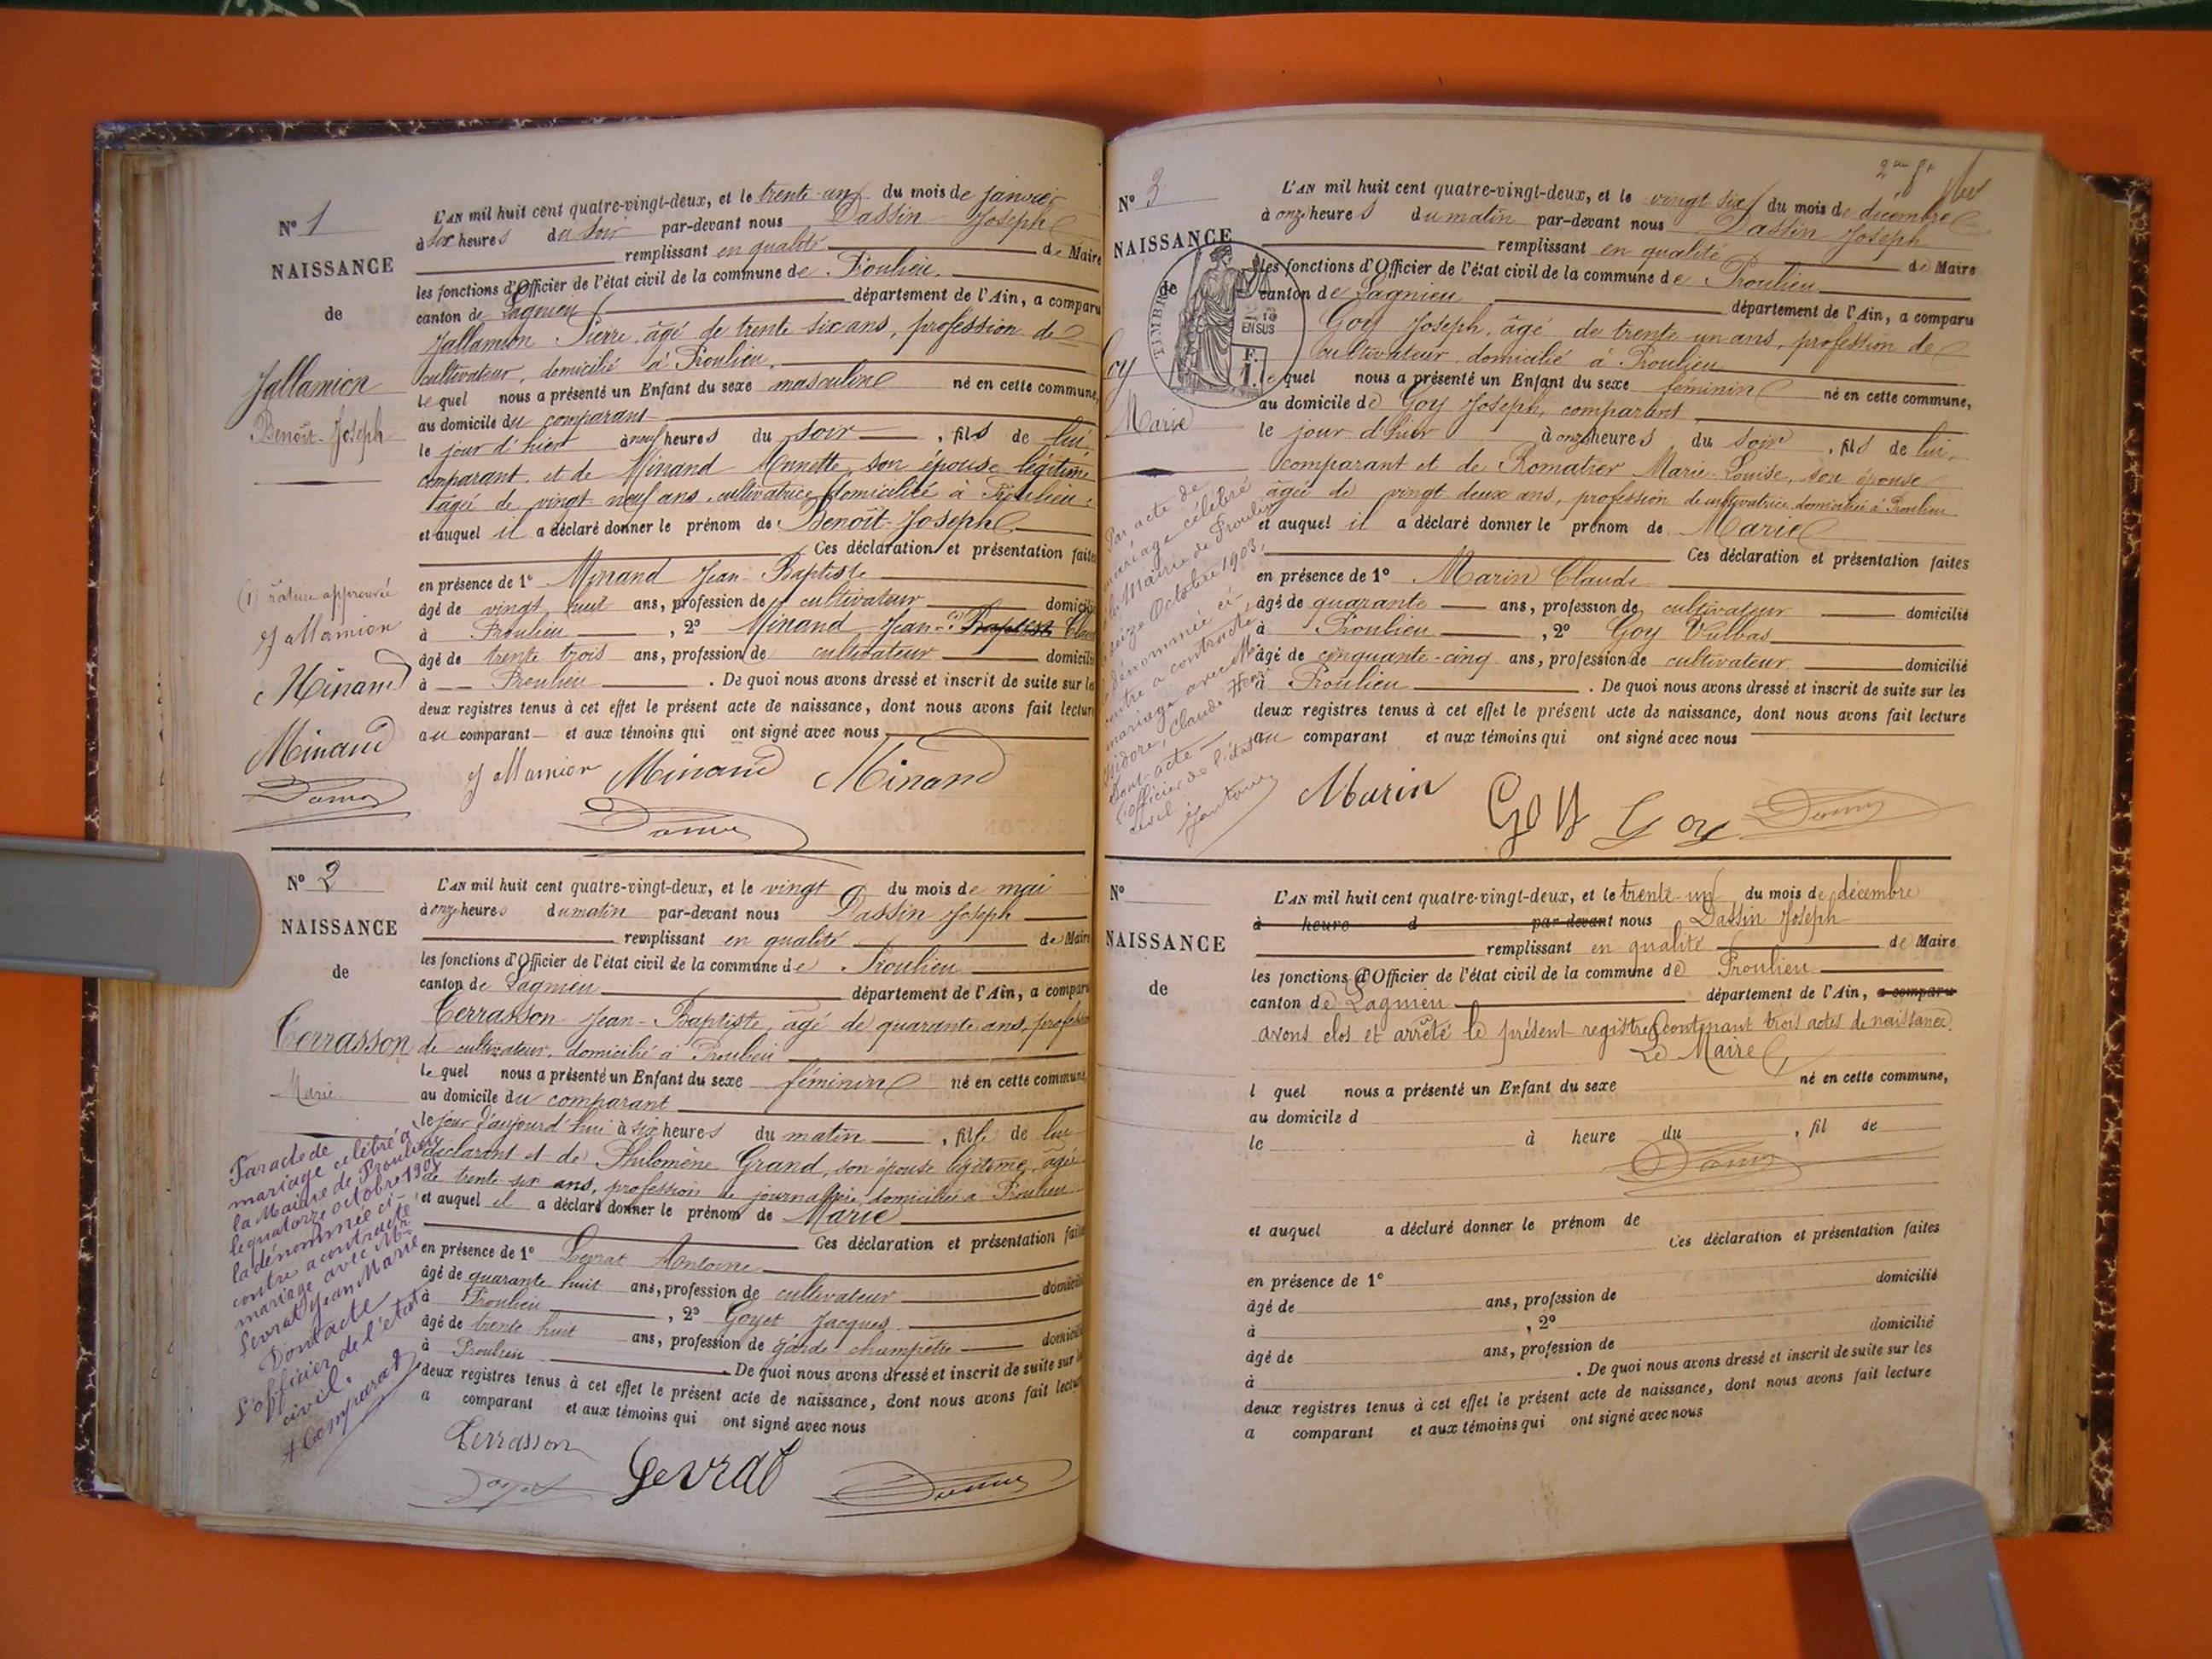 N° 1
NAISSANCE
de
Jallamion
Benoît-Joseph
L'AN mil huit cent quatre-vingt-deux, et le trente-un du mois de janvier
à six heures du soir par-devant nous Dassin Joseph
remplissant en qualité de Maire
les fonctions d'Officier de l'état civil de la commune de Proulieu
canton de Lagnieu département de l'Ain, a comparu
Jallamion Pierre, âgé de trente six ans, profession de
cultivateur, domicilié à Proulieu,
le quel nous a présenté un Enfant du sexe masculin né en cette commune,
au domicile du comparant
le jour d'hier à neuf heures du soir, fils de lui
comparant et de Minand Annette, son épouse légitime
âgée de vingt-neuf ans, cultivatrice, domiciliée à Proulieu
et auquel il a déclaré donner le prénom de Benoît-Joseph
Ces déclaration et présentation faites
en présence de 1° Minand Jean-Baptiste
âgé de vingt huit ans, profession de cultivateur domicilié
à Proulieu, 2° Minand Jean-(1) Baptiste Claude
âgé de trente trois ans, profession de cultivateur domicilié
à Proulieu. De quoi nous avons dressé et inscrit de suite sur les
deux registres tenus à cet effet le présent acte de naissance, dont nous avons fait lecture
au comparant et aux témoins qui ont signé avec nous
(1) rature approuvée
Jallamion
Minand
Minand
Jallamion Minand Minand
N° 2
NAISSANCE
de
Terrasson
Marie
L'AN mil huit cent quatre-vingt-deux, et le vingt du mois de mai
à onze heures du matin par-devant nous Dassin Joseph
remplissant en qualité de Maire
les fonctions d'Officier de l'état civil de la commune de Proulieu
canton de Lagnieu département de l'Ain, a comparu
Terrasson Jean-Baptiste, âgé de quarante ans, profession
de cultivateur, domicilié à Proulieu
le quel nous a présenté un Enfant du sexe féminin né en cette commune,
au domicile du comparant
le jour d'aujourd'hui à six heures du matin, fille de lui
déclarant et de Philomène Grand, son épouse légitime, âgée
de trente six ans, profession de journalière domiciliée à Proulieu
et auquel il a déclaré donner le prénom de Marie
Ces déclaration et présentation faites
en présence de 1° Levrat Antoine
âgé de quarante huit ans, profession de cultivateur domicilié
à Proulieu, 2° Goyet Jacques
âgé de trente huit ans, profession de garde champêtre domicilié
à Proulieu. De quoi nous avons dressé et inscrit de suite sur les
deux registres tenus à cet effet le présent acte de naissance, dont nous avons fait lecture
a comparant et aux témoins qui ont signé avec nous
Par acte de
mariage célébré à
la Mairie de Proulieu
le quatorze octobre
la dénommée ci-
contre a contracté
mariage avec Mr
Levrat Jean Marie
Dont acte
L'officier de l'état
civil.
Terrasson
Goyet Levrat
2me
N° 3
NAISSANCE
de
Goy
Marie
TIMBRE
EN SUS
L'AN mil huit cent quatre-vingt-deux, et le vingt six du mois de décembre
à onze heures du matin par-devant nous Dassin Joseph
remplissant en qualité de Maire
les fonctions d'Officier de l'état civil de la commune de Proulieu
canton de Lagnieu département de l'Ain, a comparu
Goy Joseph, âgé de trente un ans, profession de
cultivateur domicilié à Proulieu
le quel nous a présenté un Enfant du sexe féminin né en cette commune,
au domicile de Goy Joseph, comparant
le jour d'hier à onze heures du soir, fils de lui
comparant et de Romatier Marie-Louise, son épouse
âgée de vingt deux ans, profession de cultivatrice domiciliée à Proulieu
et auquel il a déclaré donner le prénom de Marie
Ces déclaration et présentation faites
en présence de 1° Marin Claude
âgé de quarante ans, profession de cultivateur domicilié
à Proulieu, 2° Goy Vulbas
âgé de cinquante-cinq ans, profession de cultivateur domicilié
à Proulieu. De quoi nous avons dressé et inscrit de suite sur les
deux registres tenus à cet effet le présent acte de naissance, dont nous avons fait lecture
au comparant et aux témoins qui ont signé avec nous
Par acte de
mariage célébré
à la Mairie de Proulieu
seize Octobre 1903,
dénommée ci-
contre a contracté
mariage avec Mr
Isidore, Claude
Dont acte
L'officier de l'état
civil
Marin Goy Goy
N°
NAISSANCE
de
L'AN mil huit cent quatre-vingt-deux, et le trente-un du mois de décembre
à heure d par-devant nous Dassin Joseph
remplissant en qualité de Maire
les fonctions d'Officier de l'état civil de la commune de Proulieu
canton de Lagnieu département de l'Ain, a comparu
avons clos et arrêté le présent registre contenant trois actes de naissance.
Le Maire,
l quel nous a présenté un Enfant du sexe né en cette commune,
au domicile d
le à heure du , fil de
et auquel a déclaré donner le prénom de
Ces déclaration et présentation faites
en présence de 1°
âgé de ans, profession de domicilié
à , 2°
âgé de ans, profession de domicilié
à . De quoi nous avons dressé et inscrit de suite sur les
deux registres tenus à cet effet le présent acte de naissance, dont nous avons fait lecture
a comparant et aux témoins qui ont signé avec nous